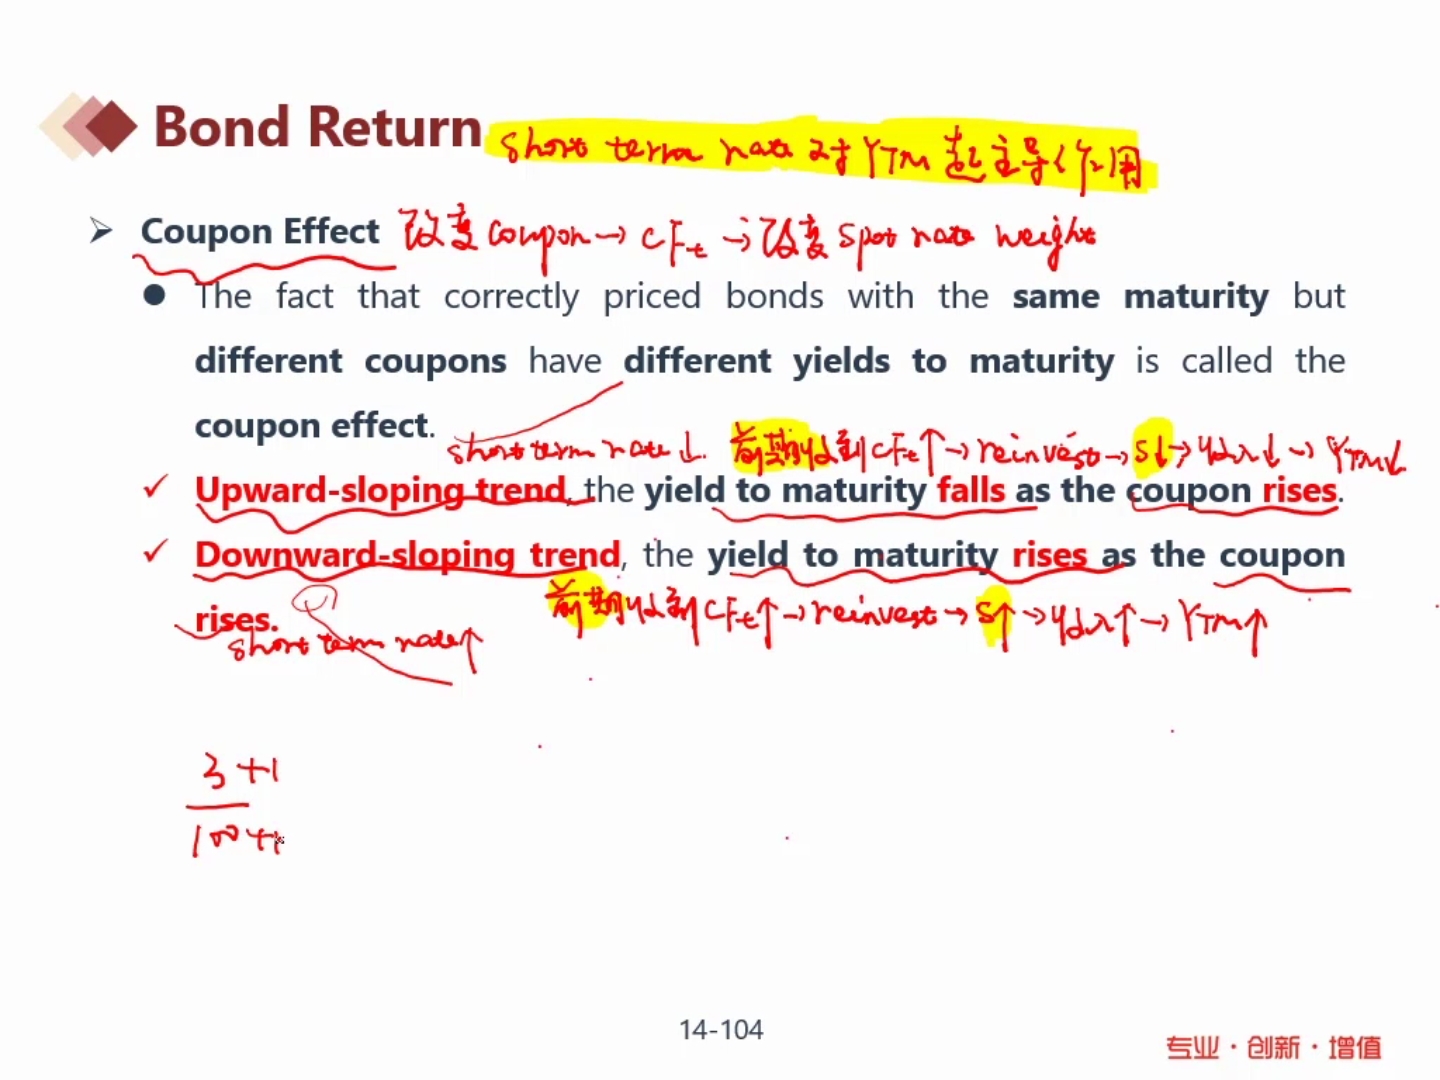 Bond Return short term rate 对 YTM 起主导作用
Coupon Effect 改变 coupon → CFt → 改变 spot rate weight
The fact that correctly priced bonds with the same maturity but
different coupons have different yields to maturity is called the
coupon effect.
short term rate ↓. 前期收到 CFt ↑ → reinvest → S↓ → yd入↓ → YTM↓
✓ Upward-sloping trend, the yield to maturity falls as the coupon rises.
✓ Downward-sloping trend, the yield to maturity rises as the coupon
rises. 前期收到 CFt ↑ → reinvest → S↑ → yd入↑ → YTM↑
short term rate ↑
3 +1
100 +1
14-104
专业·创新·增值